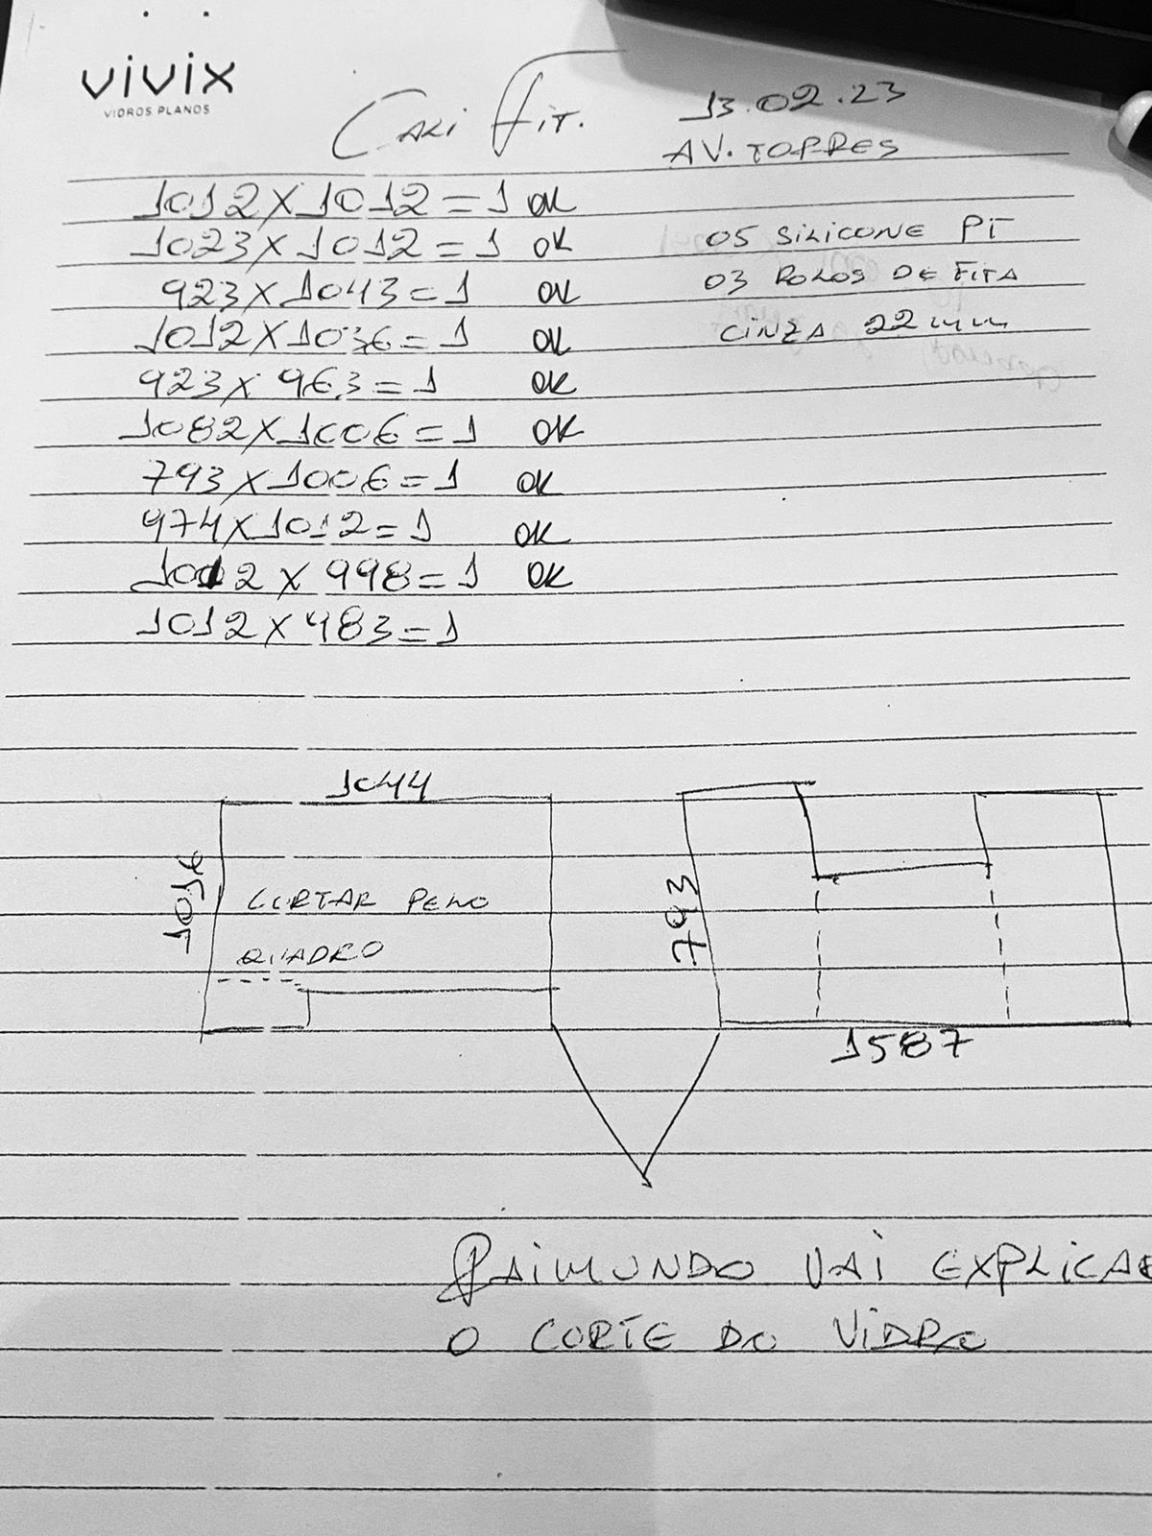 vivix
VIDROS PLANOS
CALI FIT.
13.02.23
AV. TORRES
1012 X 1012 = 1 OK
1023 X 1012 = 1 OK
923 X 1043 = 1 OK
1012 X 1036 = 1 OK
923 X 963 = 1 OK
1082 X 1006 = 1 OK
793 X 1006 = 1 OK
974 X 1012 = 1 OK
1002 X 998 = 1 OK
1012 X 483 = 1
05 SILICONE PT
03 ROLOS DE FITA
CINZA 22 mm
1044
1016
CORTAR PELO
QUADRO
793
1587
RAIMUNDO VAI EXPLICAR
O CORTE DO VIDRO